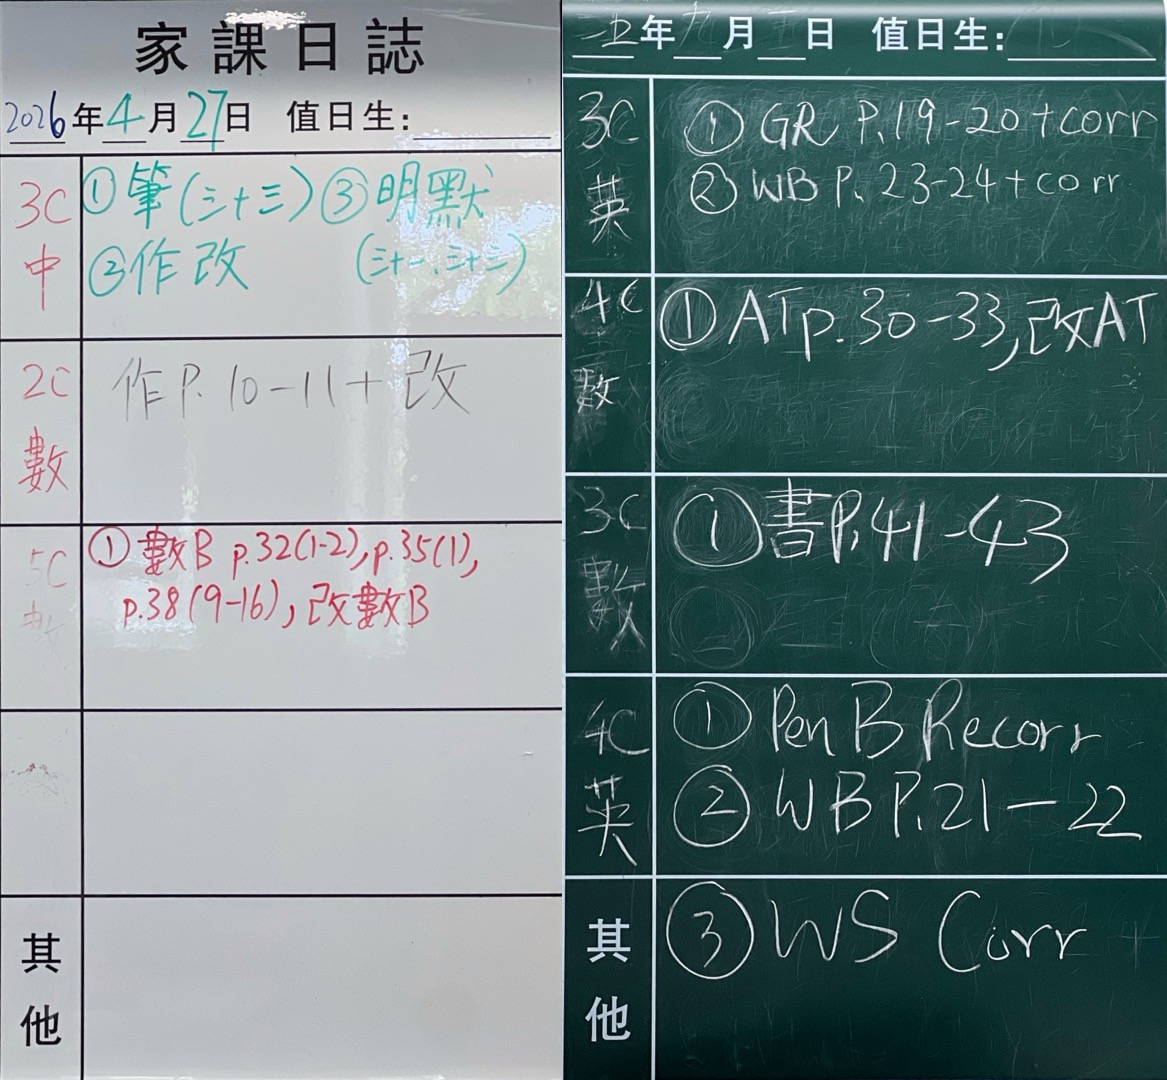 家課日誌
2026年4月27日 值日生:
3C 中
①筆(三十三) ③明默
②作改 (三十一、三十二)
2C 數
作P.10-11+改
5C 數
①數B p.32(1-2), p.35(1),
p.38(9-16), 改數B
其他
年 月 日 值日生:
3C 英
① GR P.19-20+corr
② WB P. 23-24+corr
4C 數
① AT p.30-33, 改AT
3C 數
① 書P.41-43
4C 英
① Pen B Recorr
② WB P.21-22
其他
③ WS Corr